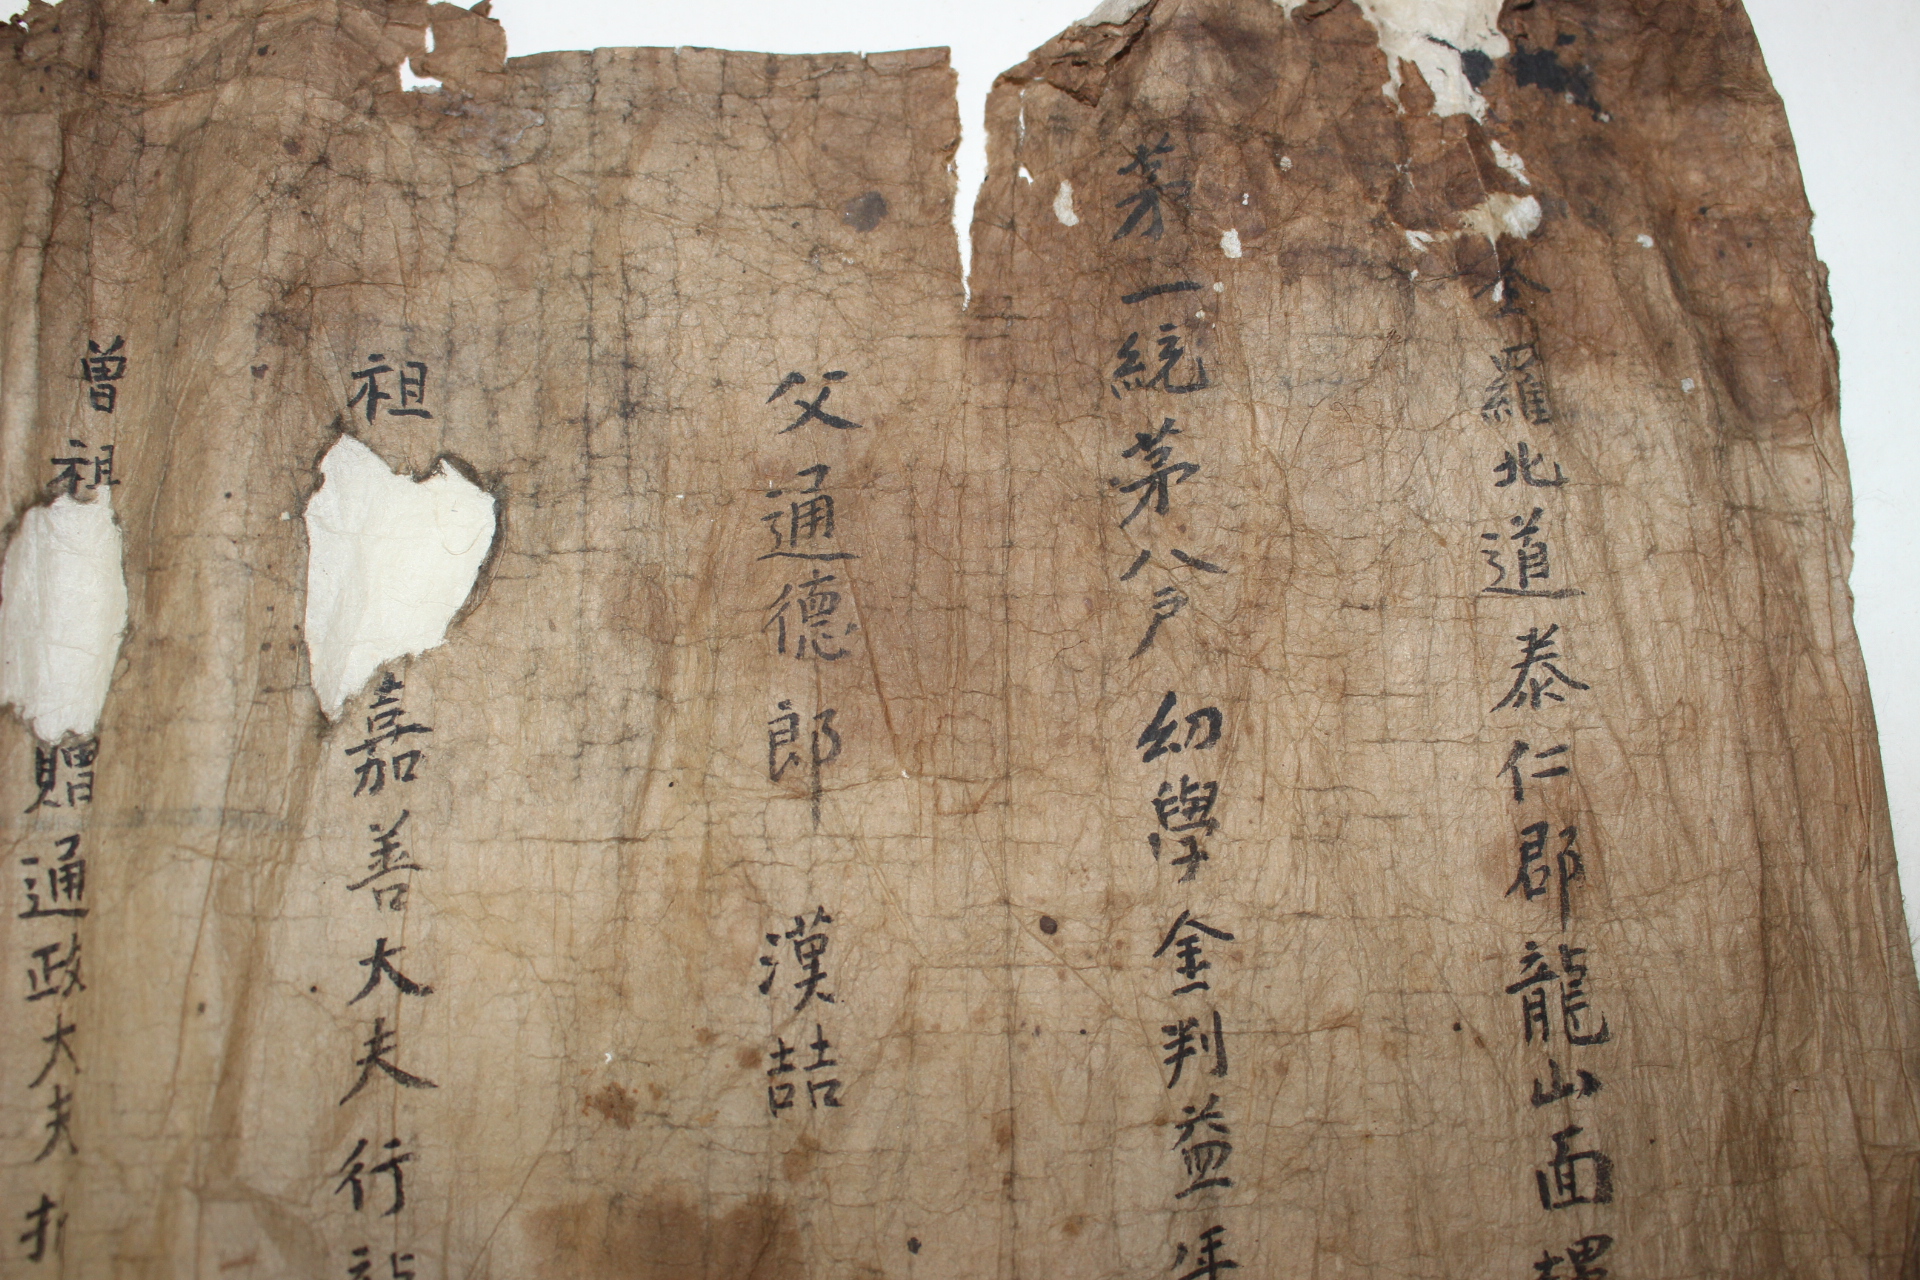 全羅北道泰仁郡龍山面
茅一統茅八戶 幼學金判益年
父通德郎 漢喆
祖 嘉善大夫行龍
曾祖 贈通政大夫